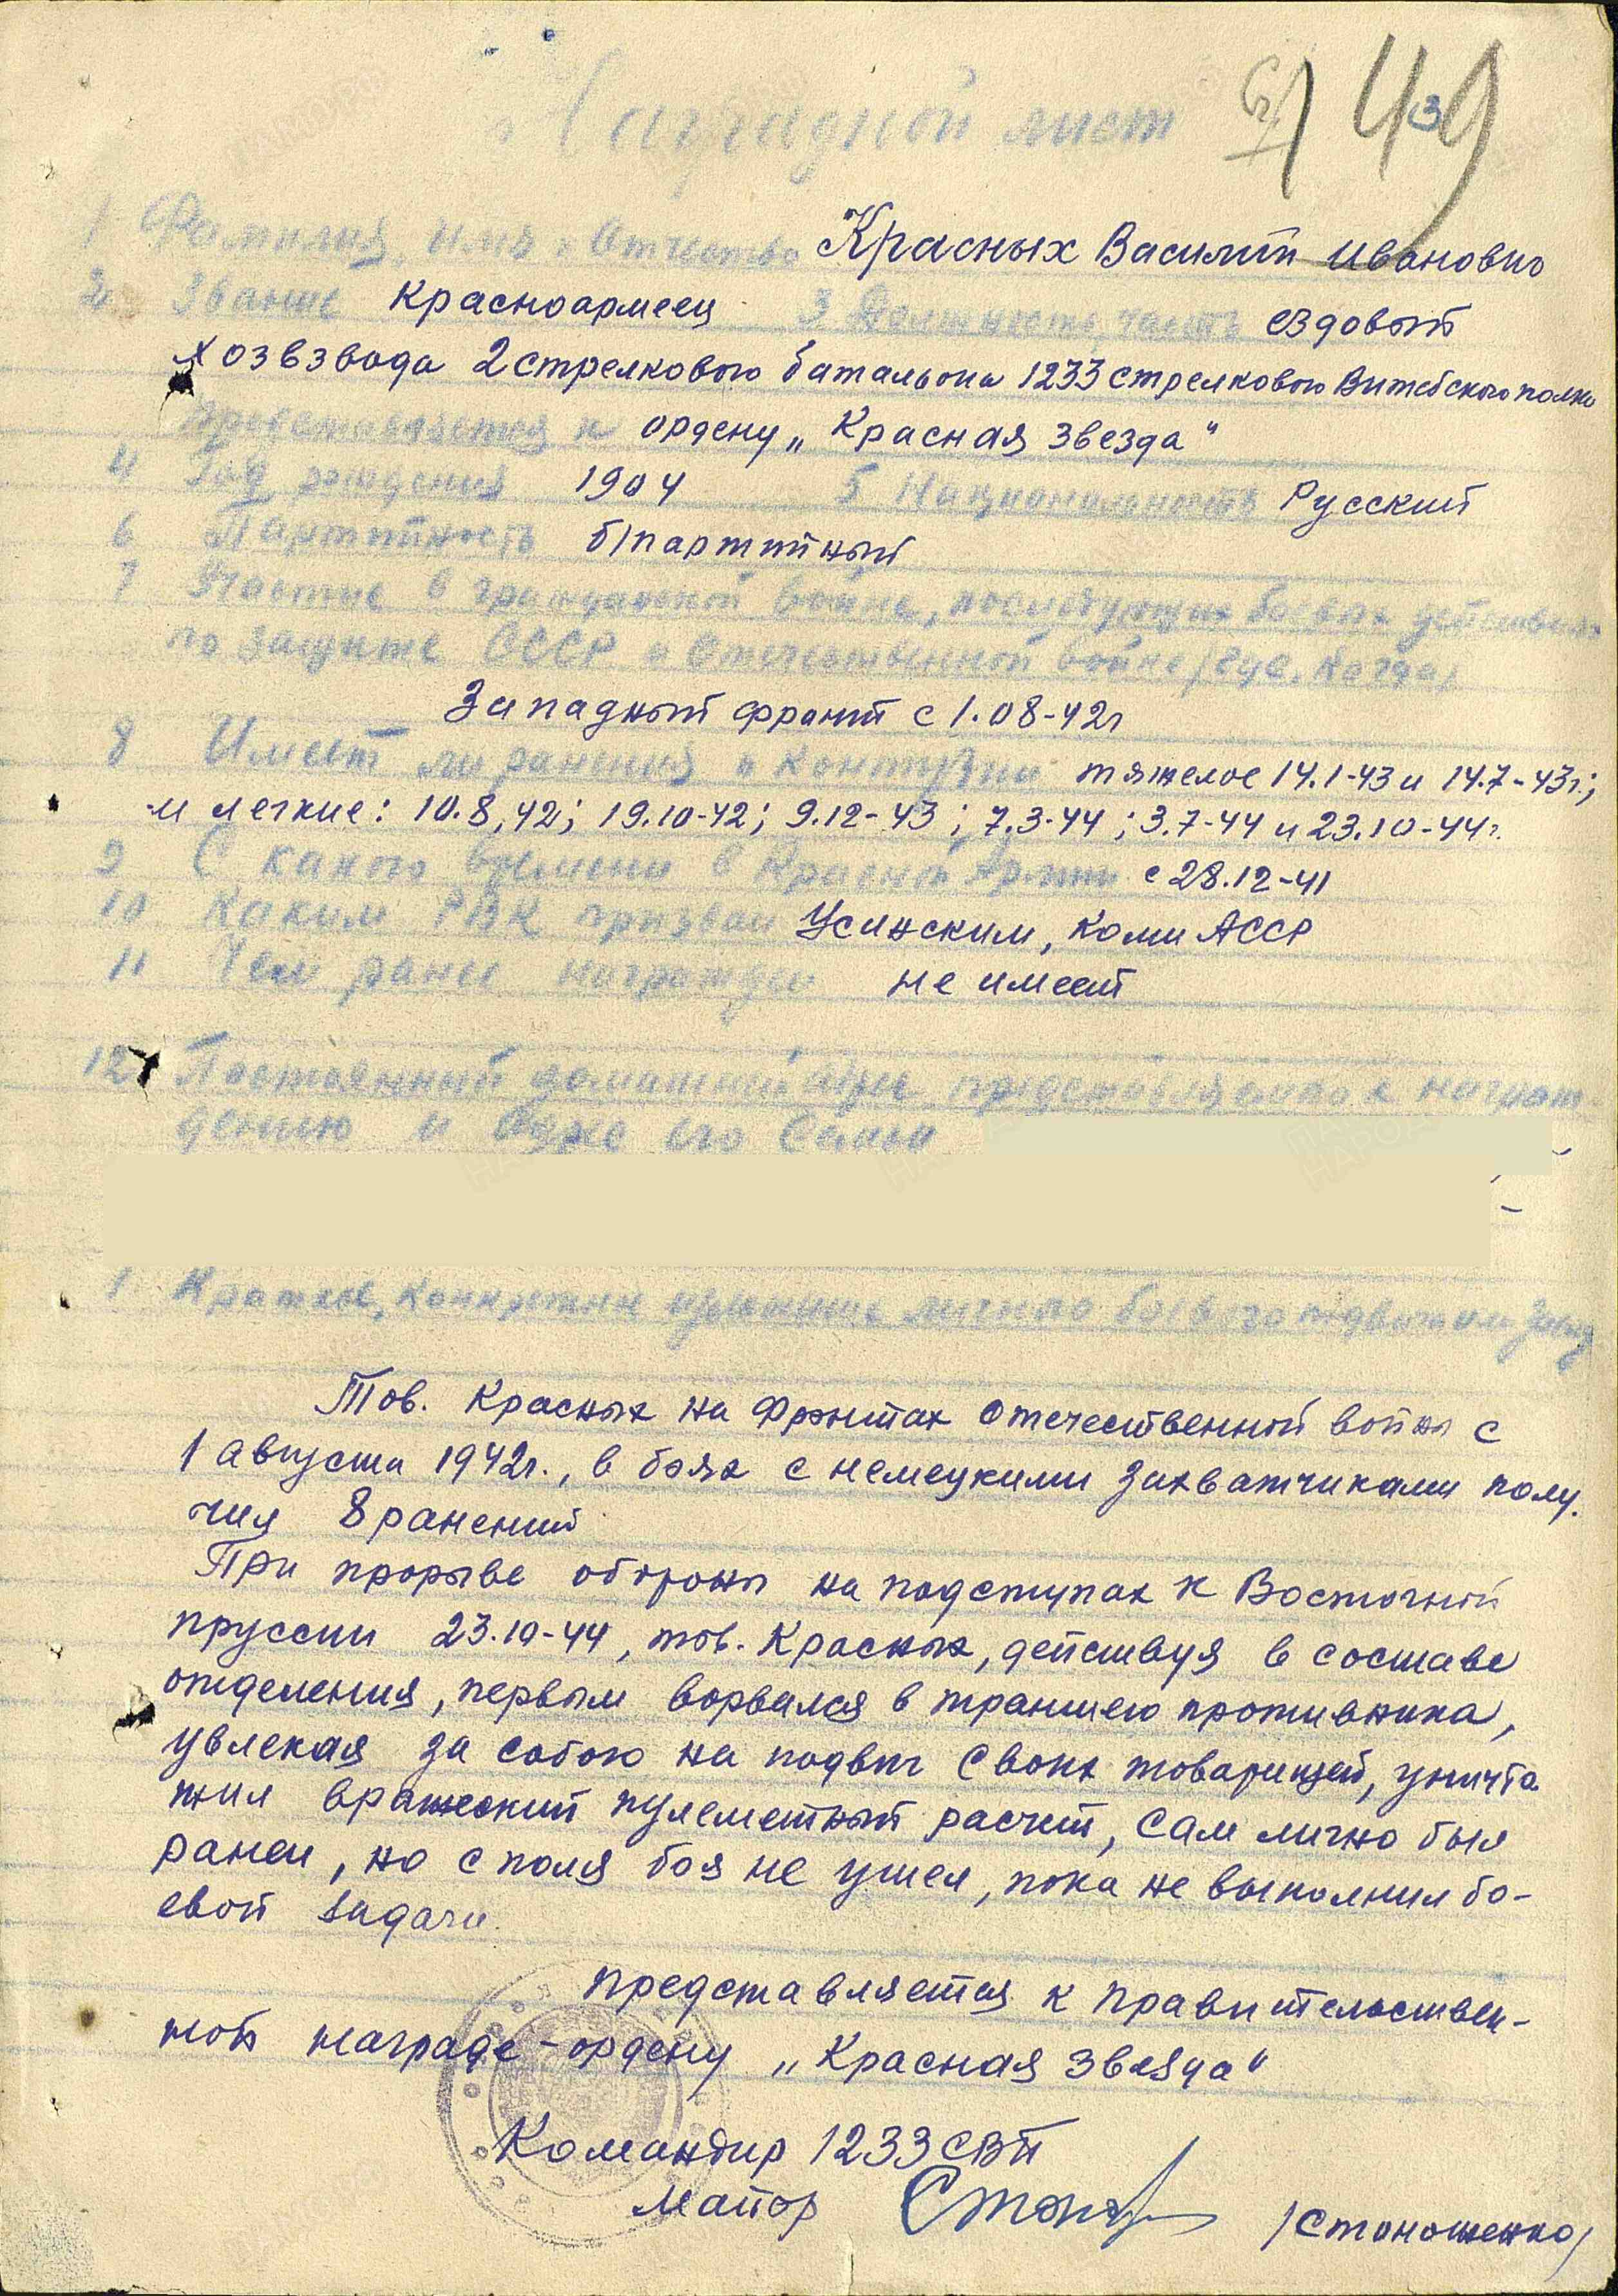 Наградной лист
149
1 Фамилия, имя и Отчество Красных Василий Иванович
2 Звание красноармеец 3 Должность, часть ездовый
хозвзвода 2 стрелкового батальона 1233 стрелкового Витебского полка
Представляется к ордену „Красная звезда"
4 Год рождения 1904 5 Национальность Русский
6 Партийность б/партийный
7 Участие в гражданской войне, последующих боевых действиях
по защите СССР и Отечественной войне (где, когда)
Западный фронт с 1.08-42г
8 Имеет ли ранения и контузии тяжелое 14.1-43 и 14.7-43г;
и легкие: 10.8.42; 19.10-42; 9.12-43; 7.3-44; 3.7-44 и 23.10-44г.
9 С какого времени в Красной Армии с 28.12-41
10 Каким РВК призван Усинским, Коми АССР
11 Чем ранее награжден не имеет
12 Постоянный домашний адрес представляемого к награж
дению и адрес его Семьи
1 Краткое, конкретное изложение личного боевого подвига или
Тов. Красных на фронтах Отечественной войны с
1 августа 1942г., в боях с немецкими захватчиками полу.
чил 8 ранений
При прорыве обороны на подступах к Восточной
пруссии 23.10-44, тов. Красных, действуя в составе
отделения, первым ворвался в траншею противника,
увлекая за собою на подвиг своих товарищей, уничта
жил вражеский пулеметный расчет, сам лично был
ранен, но с поля боя не ушел, пока не выполнил бо-
евой задачи.
представляется к правительствен-
ной награде - ордену „Красная звезда"
Командир 1233 СВП
Майор /Стоношенко/